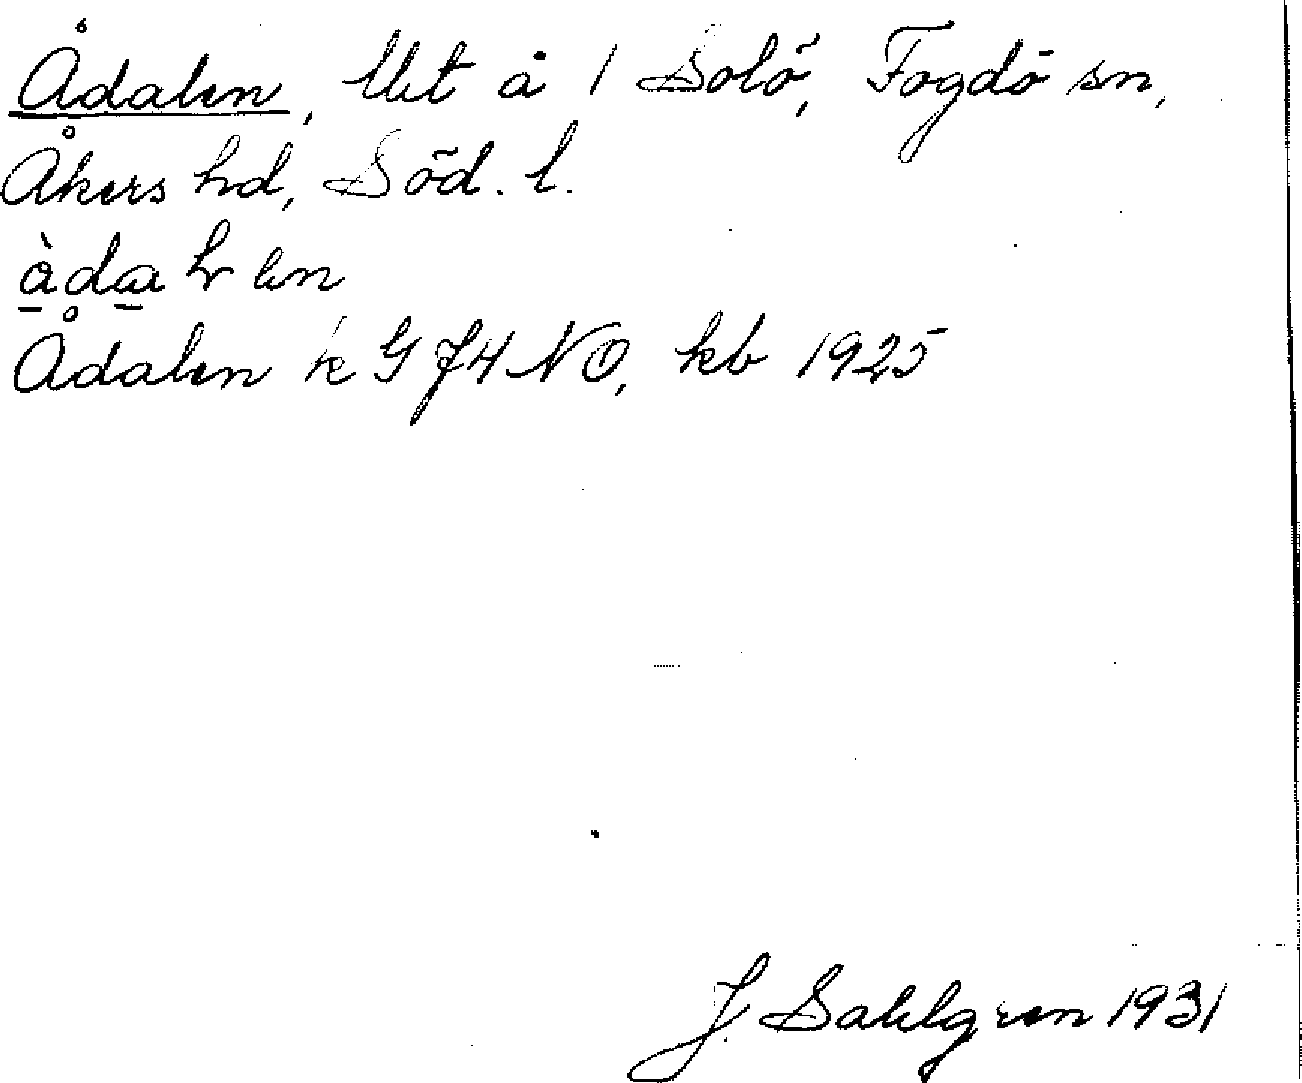 Ådalen, lht å 1 Solö, Fogdö sn,
Åkers hd, Söd. l.
Ådalen k GJ4NO, kb 1925
J. Sahlgren 1931